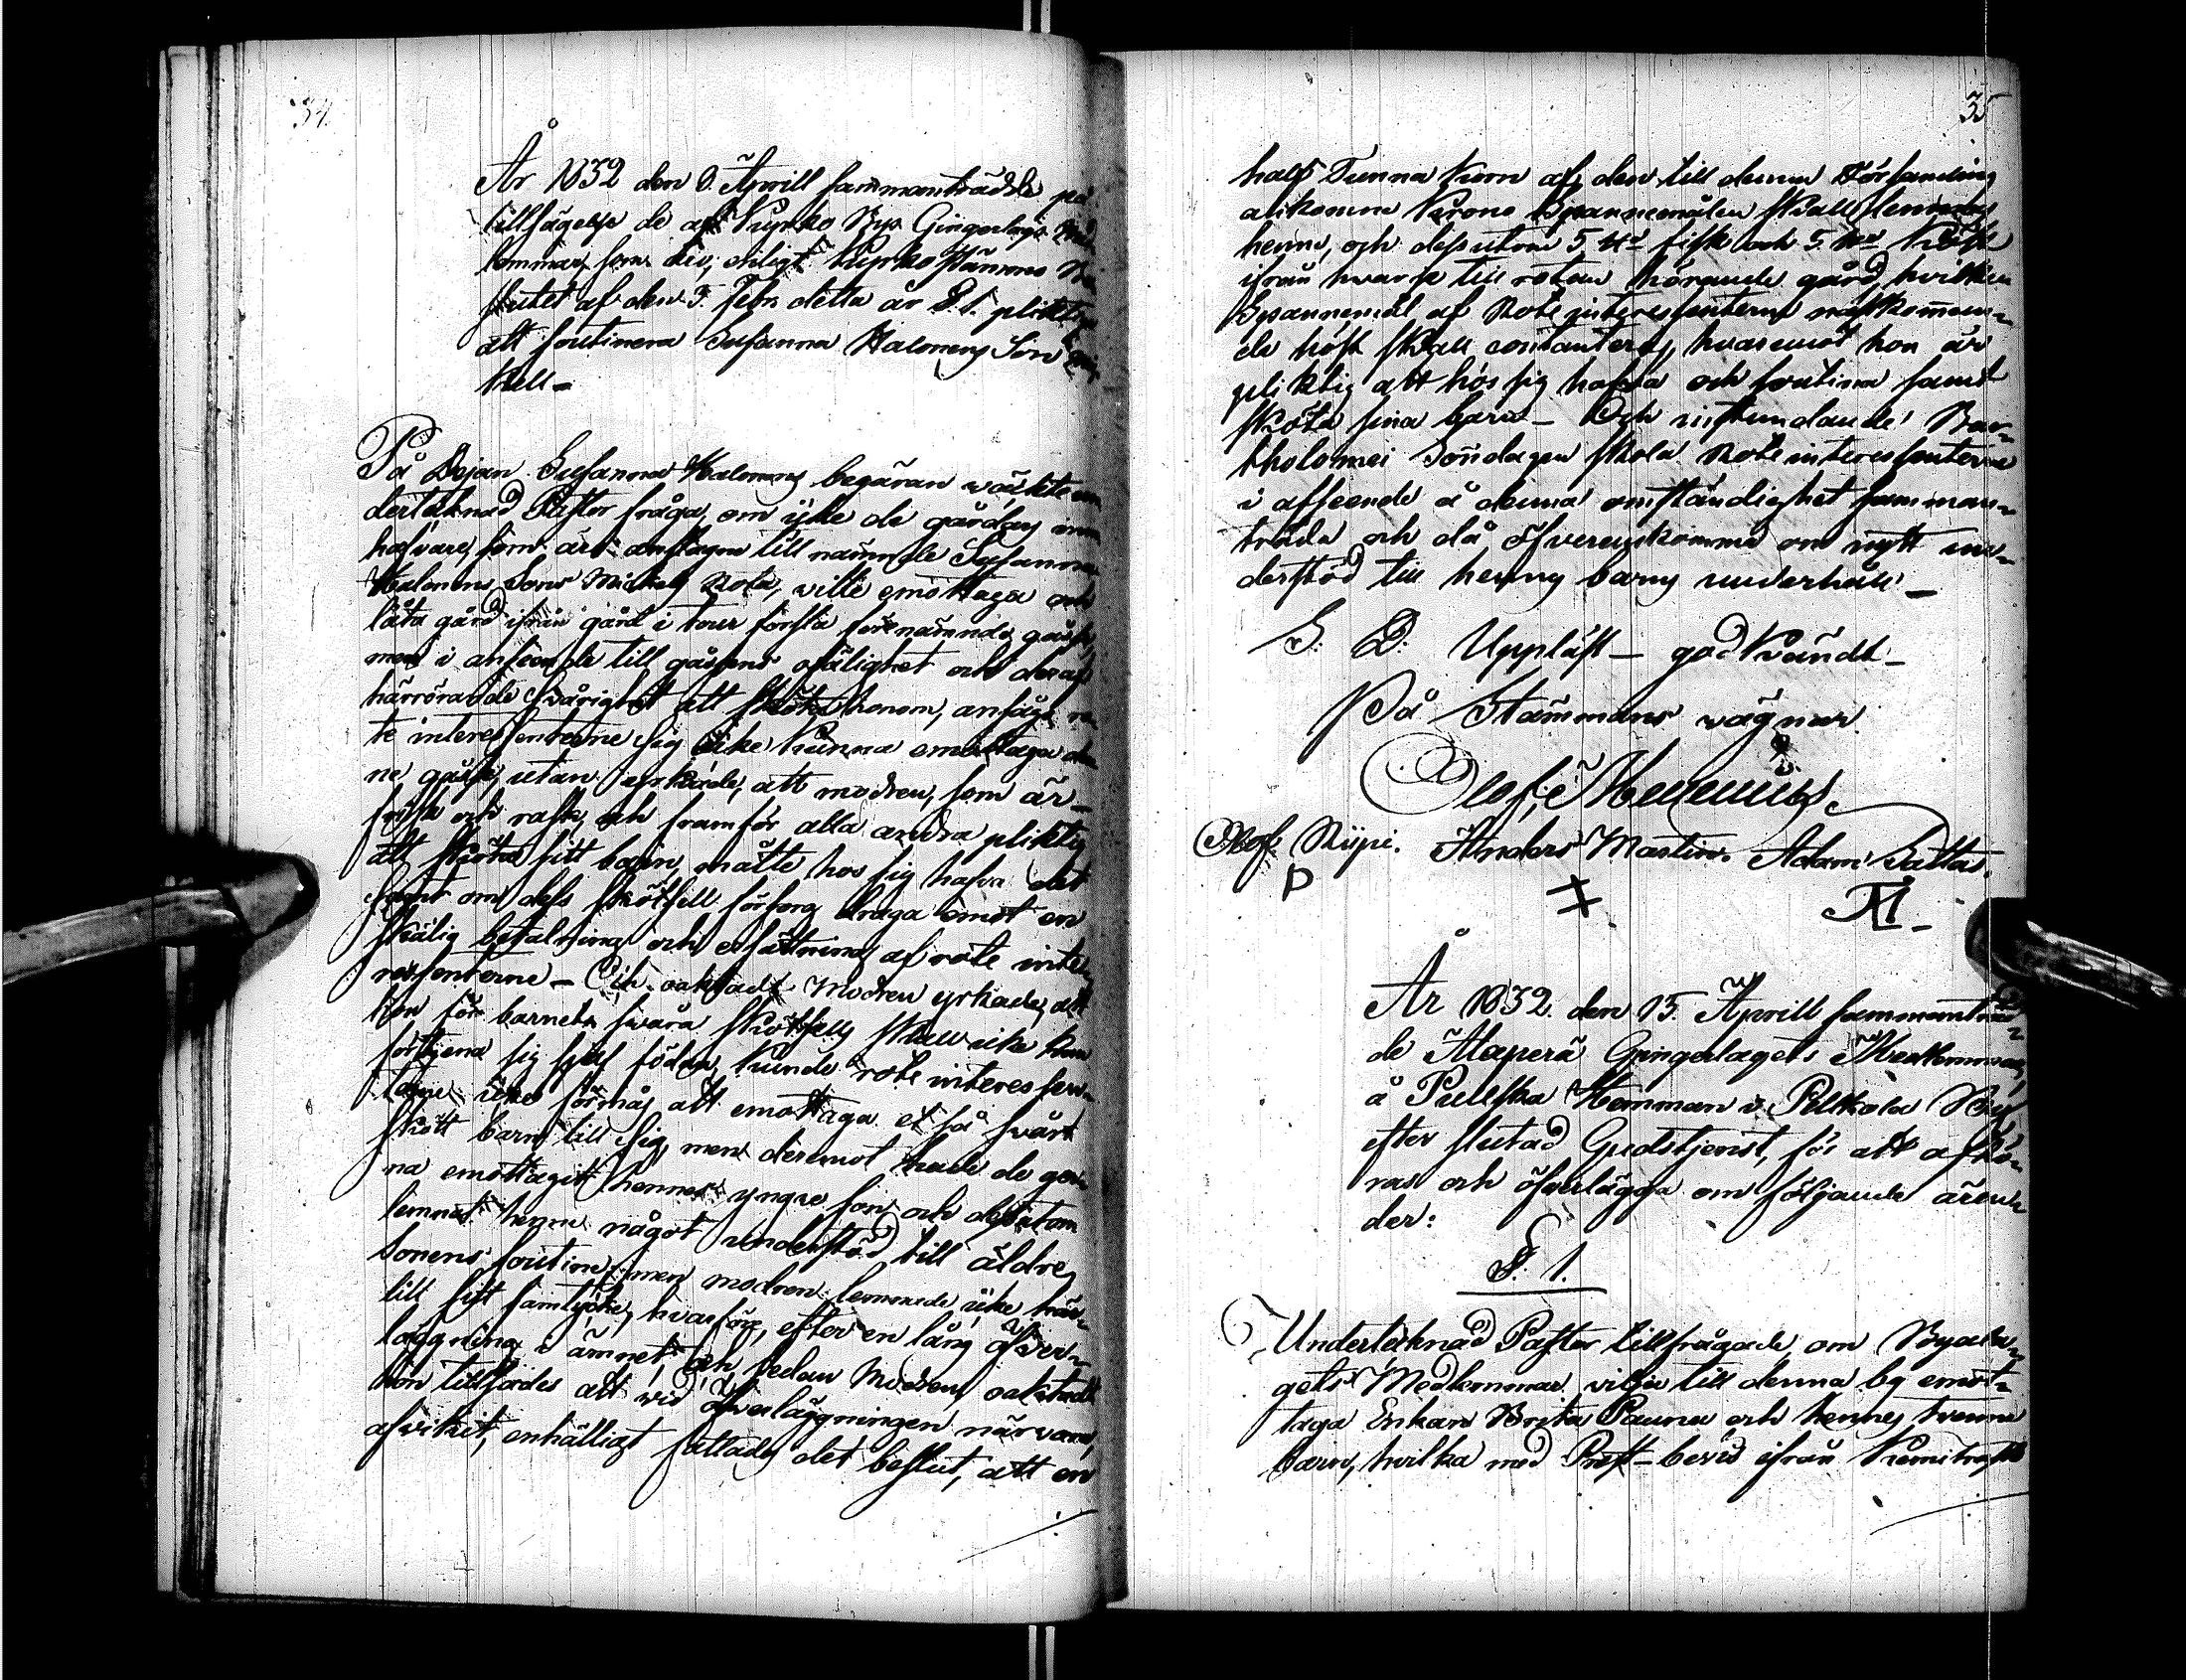 34.
År 1832 den 8. Aprill sammanträdde på
tillsägelse de af Kyrko Bys Gingerlags
lemmar, som äro, enligt Kyrko Stämmo Be
slutet af den 5. Febr. detta år §. 1. pliktige
att soutinera Susanna Halonens Son
kell –
På Pigan Susanna Halonens begäran wäckte un
dertecknad Pastor fråga, om icke de gårdars inne
hafvare, som äro anslagne till nämnde Susanna
Halonens Sons Mickels Rota, ville emottaga och
låta gård ifrån gård i tour försla förenämnde gåsse,
men i anseende till gåssens ofälighet och deraf
härrörande svårighet att sköta honom, ansågo ro
te interessenterne sig icke kunna emottaga den
ne gåsse, utan yrkade, att modren, som är
frisk och rask, och framför alla andra pliktig
att sköta sitt barn, måtte hos sig hafva det
samt om dess skötsell försorg draga emot en
skälig betalning och ersättning af rote inte-
ressenterne – Och oaktadt Modren yrkade, att
hon för barnets svåra skötsells skull icke kan
förtjena sig sjelf födan, kunde rote interessen-
terne icke förmås att emottaga et så svårt
skött barn till sig, men deremot hade de ger
na emottagit hennes yngre son och dessutom
lemnat henne något understöd till äldre
sonens soutien, men modren lemnade icke här-
till sitt samtycke, hvarföre, efter en lång öfver-
läggning i ämnet, och sedan Modren, oaktadt
hon tillsades att vid öfverläggningen närvara,
afvikit, enhälligt fattades det beslut, att en
35
half Tunna Korn af den till denna Församling
ankomne Krono Spannemålen skall lemnas
henne, och dessutom 5 ℔ fisk och 5 ℔ Kött
ifrån hvarje till rotan hörande gård, hvilken
Spannemål af Rote interessenterne nästkomman-
de höst skall contanteras, hvaremot hon är
pliktig att hos sig hafva och soutina samt
sköta sina barn – Och instundande Bar-
tholomei Söndagen skola Rote interessenterne
i afseende å denna omständighet samman-
träda och då öfverenskomma om nytt un-
derstöd till hennes barns underhåll –
S. D. Uppläst – godkändt –
På Stämmans vägnar
Olof Mellenius
Olof Riipi. Anders Martin. Adam Sattas.
P
År 1832 den 15. Aprill sammanträd-
de Alaperä Gingerlagets Medlemmar,
å Pulska Hemman i Pelkola By,
efter slutad Gudstjenst, för att afhö-
ras och öfverlägga om följande ären-
der:
§. 1.
Undertecknad Pastor tillfrågade, om Byala-
gets Medlemmar vilja till denna by emot-
taga Enkan Brita Pauna och hennes tvenne
barn, hvilka med Prest-bevis ifrån Kemiträsk